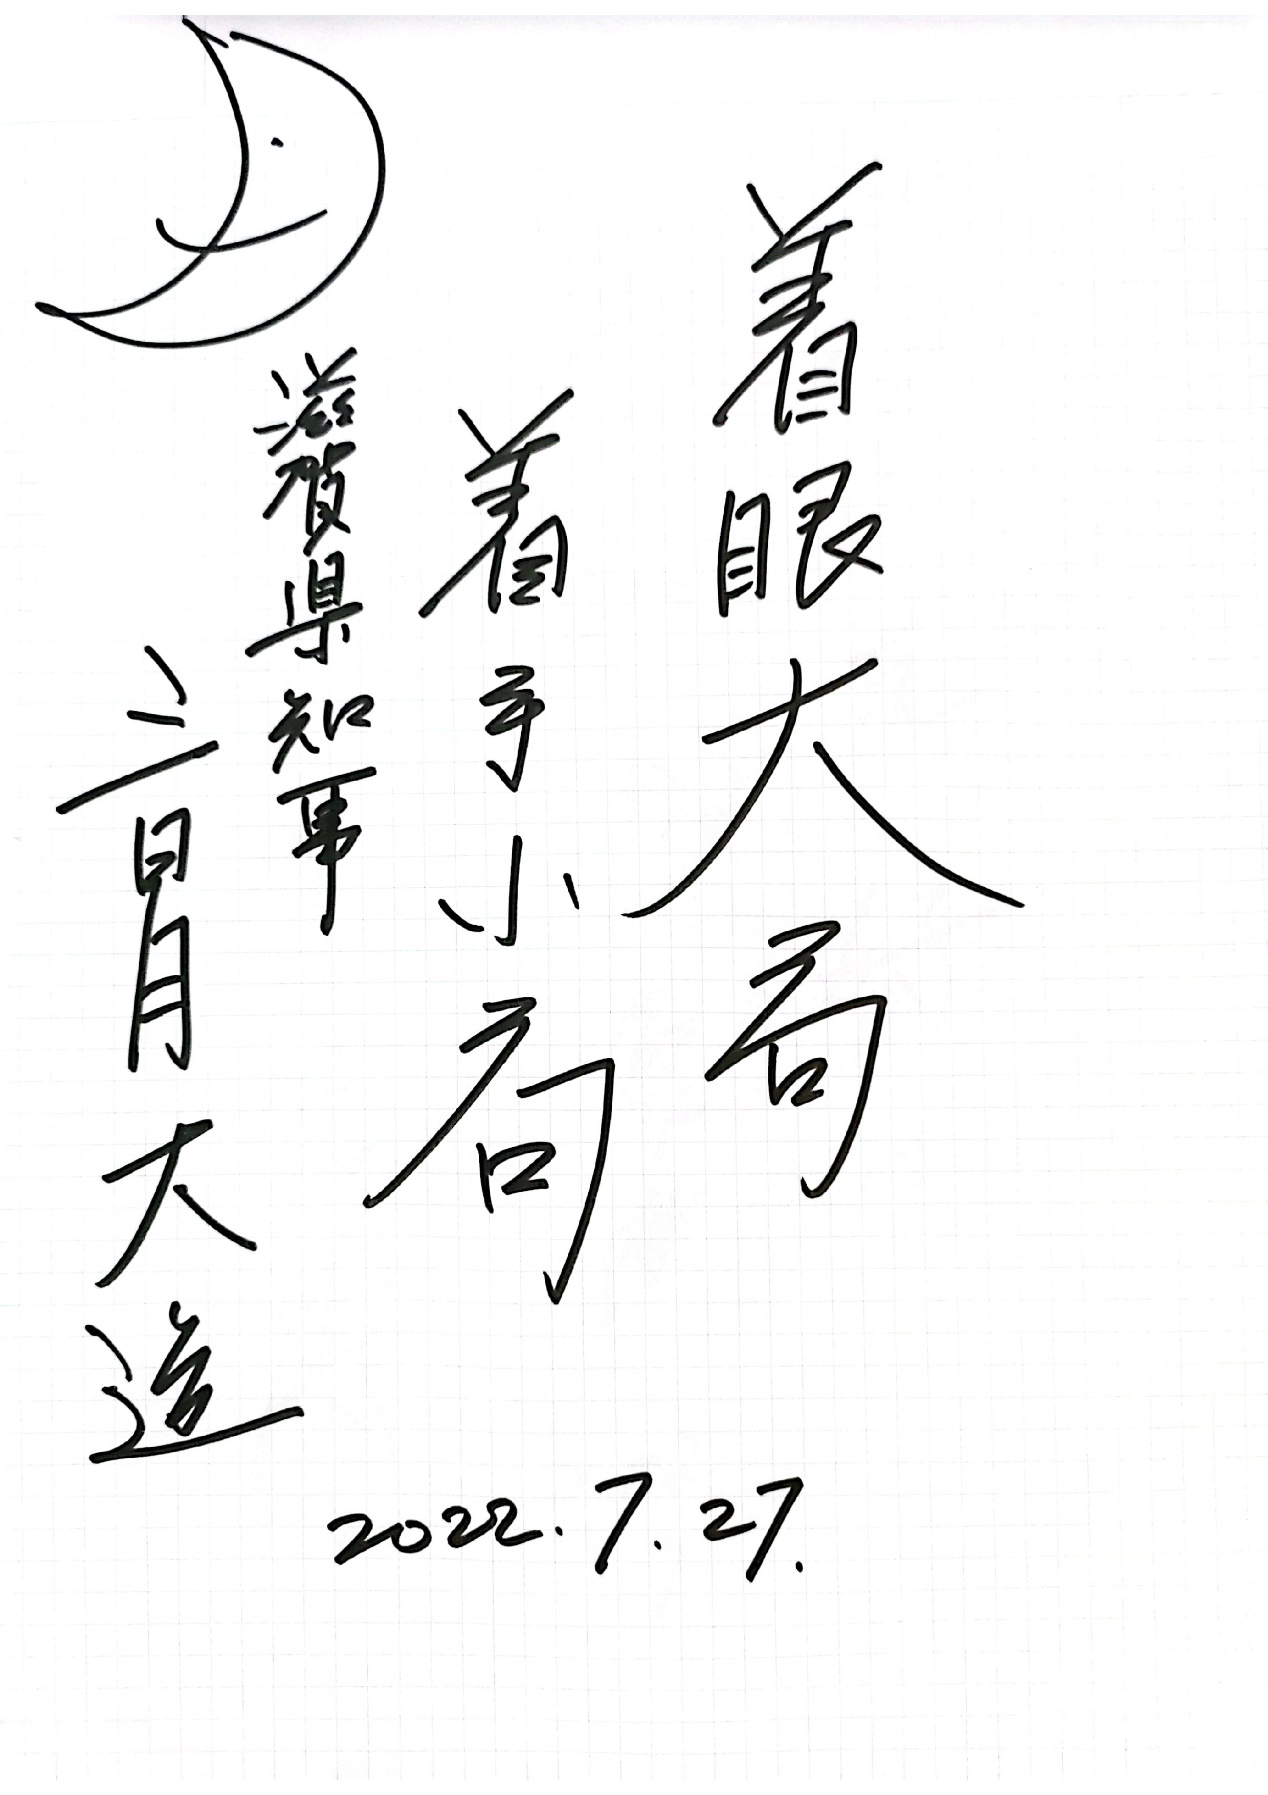 着眼大局
着手小局
滋賀県知事
三日月大造
2022.7.27.